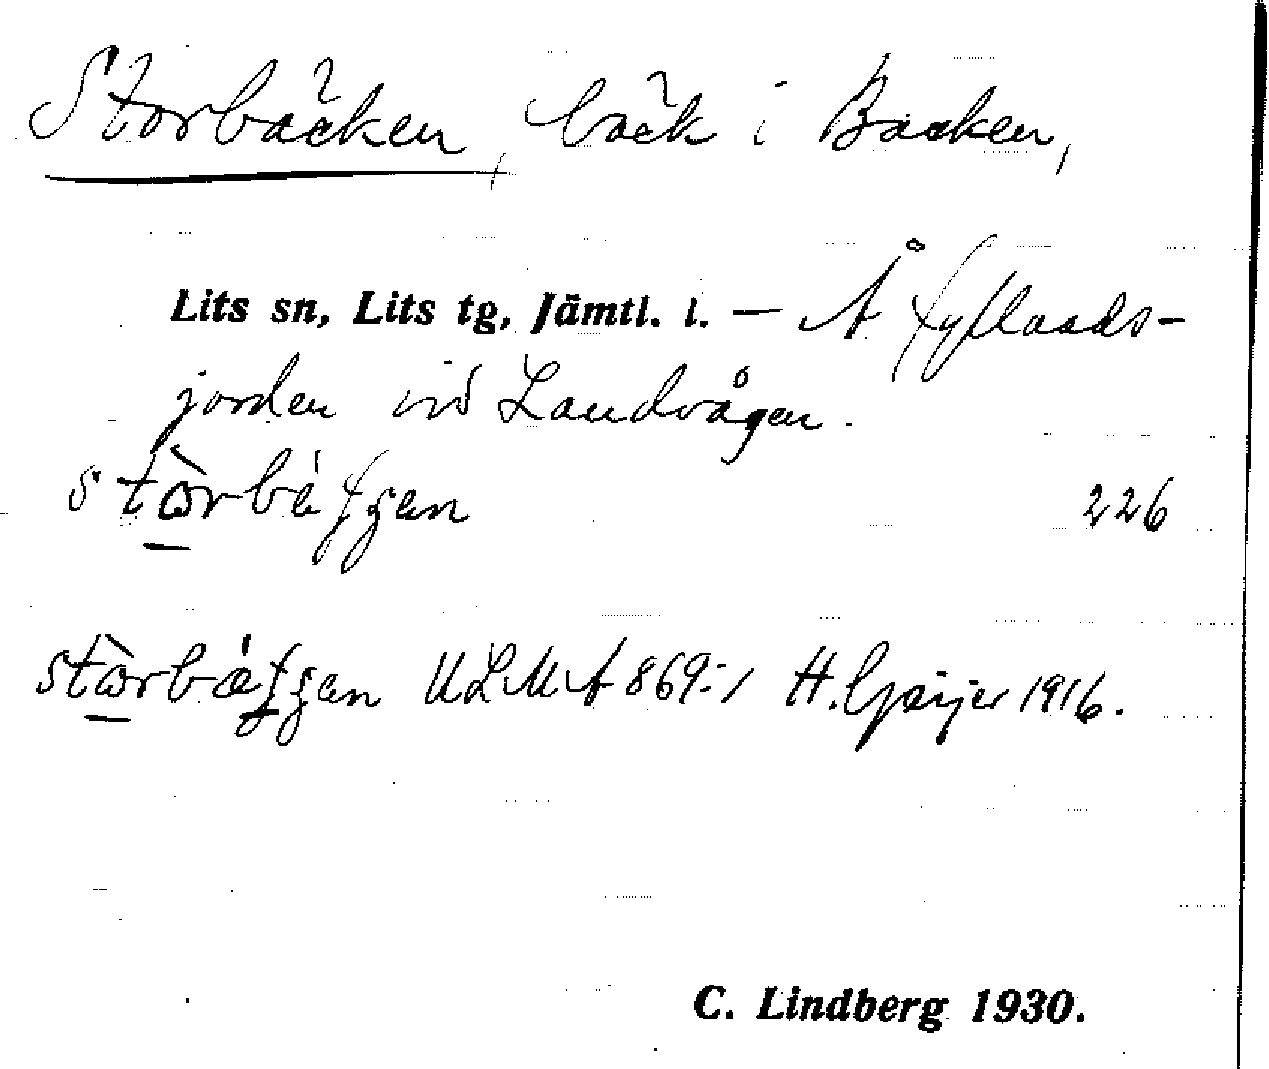 Storbäcken, bäck i Backen,
Lits sn, Lits tg, Jämtl. l. — Å fyllands-
jorden vid Landvågen.
226
ULMA 869:1 H. Geijer 1916.
C. Lindberg 1930.